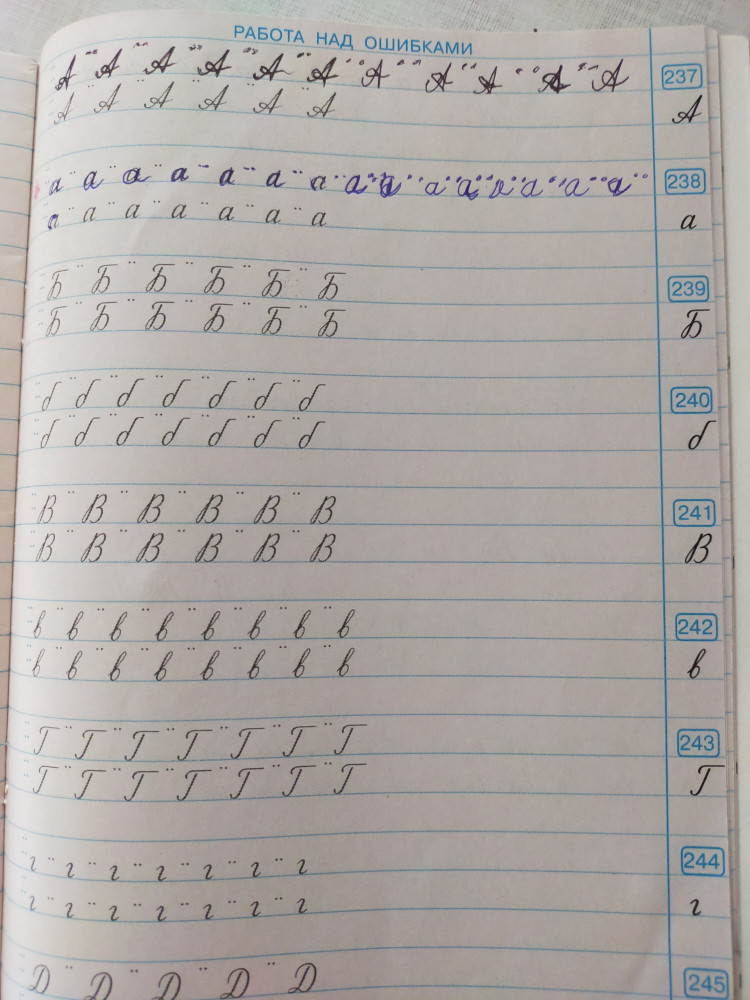 РАБОТА НАД ОШИБКАМИ
А А А А А А А А А А А 237
А А А А А А А
а а а а а а а а а а а а а а а а 238
а а а а а а а а
Б Б Б Б Б Б 239
Б Б Б Б Б Б Б
б б б б б б б 240
б б б б б б б б
В В В В В В 241
В В В В В В В
в в в в в в в в 242
в в в в в в в в в
Г Г Г Г Г Г Г 243
Г Г Г Г Г Г Г Г
г г г г г г г 244
г г г г г г г г
Д Д Д Д Д 245